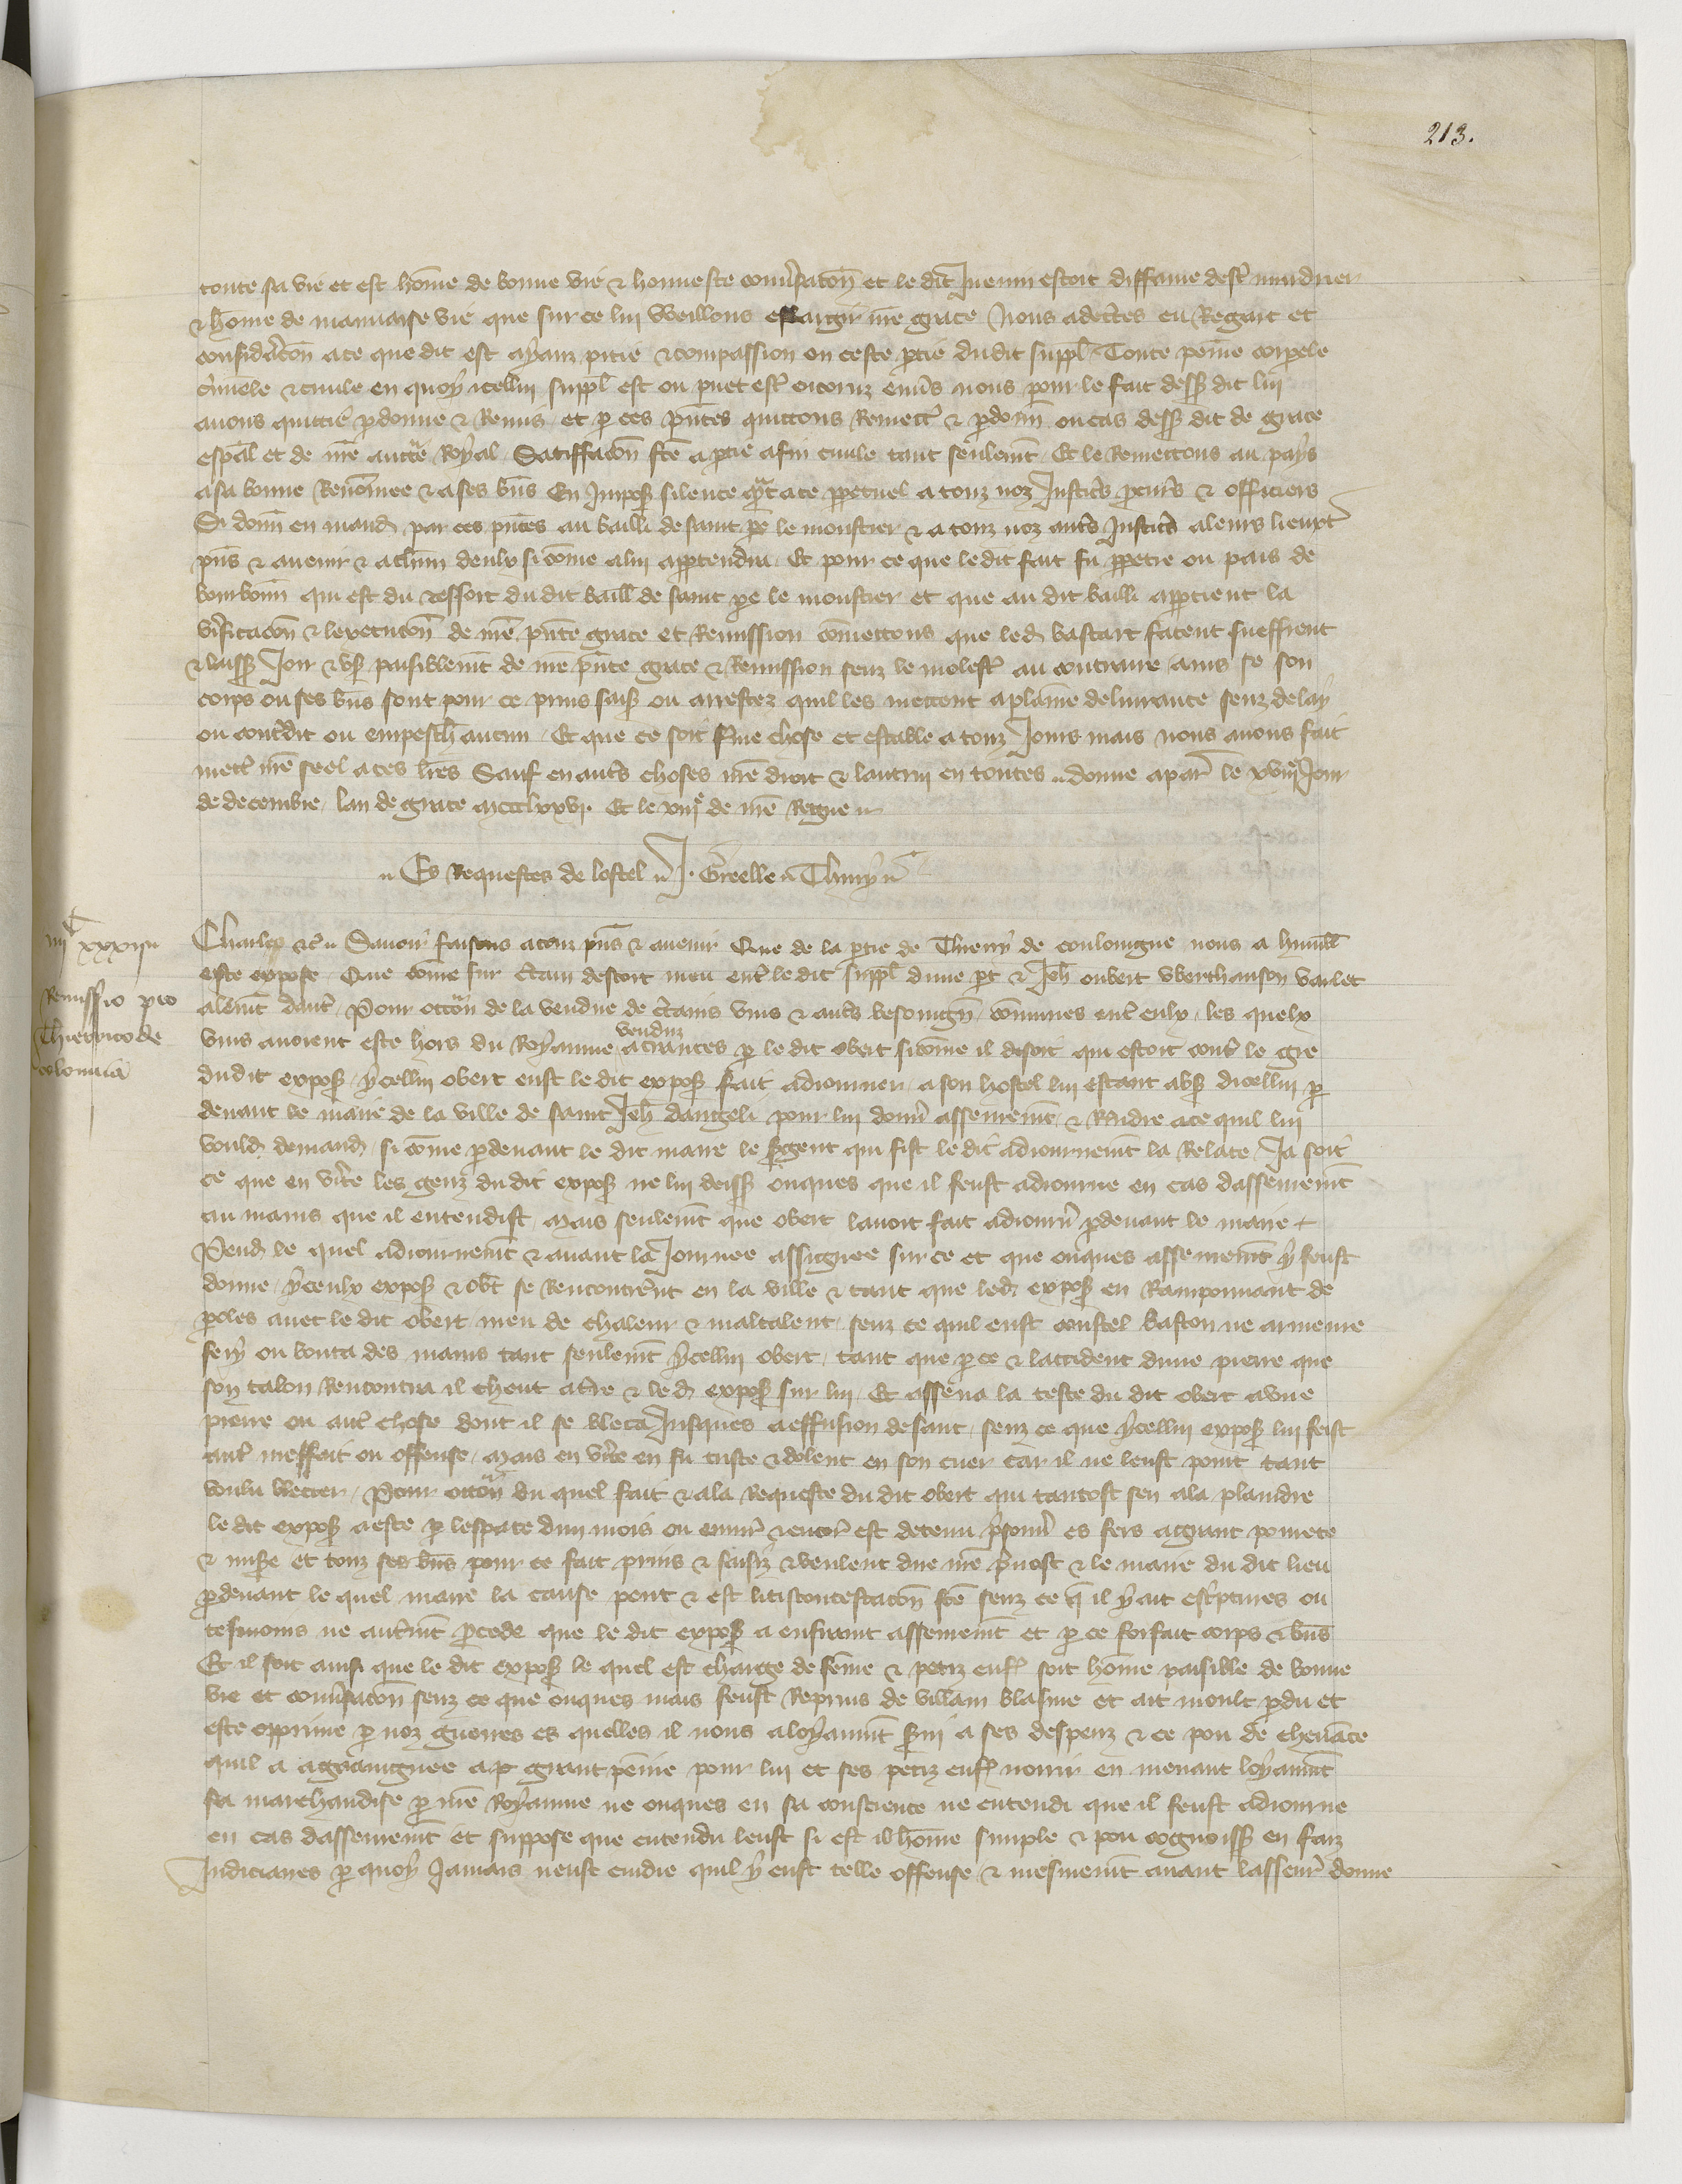 213.
toute sa vie et est hõme de bonne vie & honneste conv̾sacõn et le dit Juenin estoit diffame dest̾ murdrier
& hõme de mauvaise vie que sur ce lui Veillons eslargir nr̃e grace Nous adectes en Regart et
consid̾acõn a ce que dit est ayanz pitie & compassion en ceste p̱tie dudit suppl̃ Toute peine corpele
c̾minele & civile en quoy icellui suppl̃ est ou puet est̾ encoruz env̾s nous pour le fait dess dit lui
avons quittie p̱donne & Remis et p̱ ces p̃ntes quittons Remect̾ & p̱donñ ou cas dess dit de grace
esp̃al et de nr̃e auct̃e Royal Satiffacõn fc̃e a p̱tie afin civile tant seulemt̃ Et le Remettons au pays
a sa bonne Renõmee & a ses bñs En Impos̾ silence q̃nt a ce pp̱etuel a touz noz Justic̾s p̱cur̾s & officiers
Si donñ en mand̾ par ces p̃ntes au bailli de saint p̱e le moustier & a touz noz aut̾s Justic̾s a leurs lieuxt̾
p̃ns & avenir & a ch̃un deulx si cõme a lui app̱tendra Et pour ce que ledit fait fu pp̱etre ou pais de
bombonñ qui est du ressort du dit baill̃ de saint p̱e le moustier et que au dit bailli app̱tient la
v̾ificacõn & lexecucõn de nr̃e p̃nte grace et Remission cõmettons que led̾ bastart facent sueffrent
& laiss̾ Joir & us̾ paisiblemt̃ de nr̃e p̃nte grace & Remission senz le molest̾ au contraire ains se son
corps ou ses bñs sont pour ce prins saisiz ou arrestez quil les mettent a plaine delivrance senz delay
ou cont̾dit ou empesch̃ aucun Et que ce soit ferme chose et estable a touz Jours mais nous avons fait
mect̾ nr̃e seel a ces lr̃es Sauf en aut̾s choses nr̃e droit & lautrui en toutes donne a par̾ le xviije Jour
de decembre lan de grace mccclxxvj Et le xiije de nr̃e Regne
Es Requestes de lostel J. Greelle Thury
iiijc xxxiij
Remissio pro
Thierrico de
colonia
Charles &c̃ Savoir faisons a touz p̃ns & avenir Que de la p̱tie de Thierry de couloingne nous a humbl̃
este expose Que cõme sur c̾tain descort meu ent̾ le dit suppl̃ dune p̱t & Jeh̃ oubert vailet
alemt̃ daut̾ Pour occõn de la vendue de c̾tains vins & aut̾s besoingñ cõmunes ent̾ eulx les quelx
vins avoient este hors du Royaume venduz acrances p̱ le dit obert si cõme il disoit qui estoit cont̾ le gre
dudit expos̾ ycellui obert eust le dit expos̾ fait adiourner a son hostel lui estant abs̾ dicellui p̱
devant le maire de la ville de saint Jeh̃ dangeli pour lui donñ assemenmt̃ & Rñdre a ce quil lui
vould̾ demand̾ si cõme p̱devant le dit maire le s̾gent qui fist le dit adiournemt̃ la Relate Ja soit
ce que en v̾ite les genz du dit expos̾ ne lui deiss̾ onques que il feust adiourne en cas dassemenmt̃
au mains que il entendist Mais seulemt̃ que obert lavoit fait adiourñ p̱devant le maire &
Pend̾ le quel adiournemt̃ & avant la Journee assignee sur ce et que onques assemenmt̃ y feust
donne yceulx expos̾ & obt̃ se Rencontr̾ent en la ville & tant que led̾ expos̾ en Ramponnant de
p̱oles avec le dit obert meu de chaleur & maltalent senz ce quil eust coustel baston ne armeure
fery ou bouta des mains tant seulemt̃ ycellui obert tant que p̱ ce & laccident dune pierre que
son talon Rencontra il cheut a t̾re & led̾ expos̾ sur lui Et assena la teste du dit obert a une
pierre ou aut̾ chose dont il se bleca Jusques a effusion de sanc senz ce que ycellui expos̾ lui feist
aut̾ meffait ou offense Mais en v̾ite en fu triste & dolent en son cuer car il ne leust point tant
voulu blecier Pour occõn du quel fait & a la Requeste du dit obert qui tantost sen ala plaindre
le dit expos̾ a este p̱ lespace dun mois ou environ & encor̾ est detenu p̾sonñ es fers a grant povrete
& mis̾e et touz ses bñs pour ce fait prins & saisiz & veulent dire nr̃e p̾vost & le maire du dit lieu
p̱devant le quel maire la cause pent & est litiscontestacõn fc̃e senz ce q̃ il y ait esc̾ptures ou
tesmoins ne aut̾mt̃ p̱cede que le dit expos̾ a enfraint assemenmt̃ et p̱ ce forfait corps & bñs
Et il soit ainsi que le dit expos̾ le quel est charge de fẽme & petiz enf̾ soit hõme paisible de bonne
vie et conv̾sacõn senz ce que onques mais feust Reprins de villain blasme et ait moult p̱du et
este opprime p̱ noz guerres es quelles il nous a loyaumt̃ s̾vi a ses despenz & ce pou de chevãce
quil a agaaingnee a t̾s grant peine pour lui et ses petiz enf̾ norrir en menant loyaumt̃
sa marchandise p̱ nr̃e Royaume ne onques en sa conscience ne entendi que il feust adiourne
en cas dassemenmt̃ et suppose que entendu leust si est il hõme simple & pou cognoiss̾ en faiz
Judiciaires p̱ quoy Jamais neust cuidie quil y eust telle offense & mesmemt̃ avant lasseur̾ donne